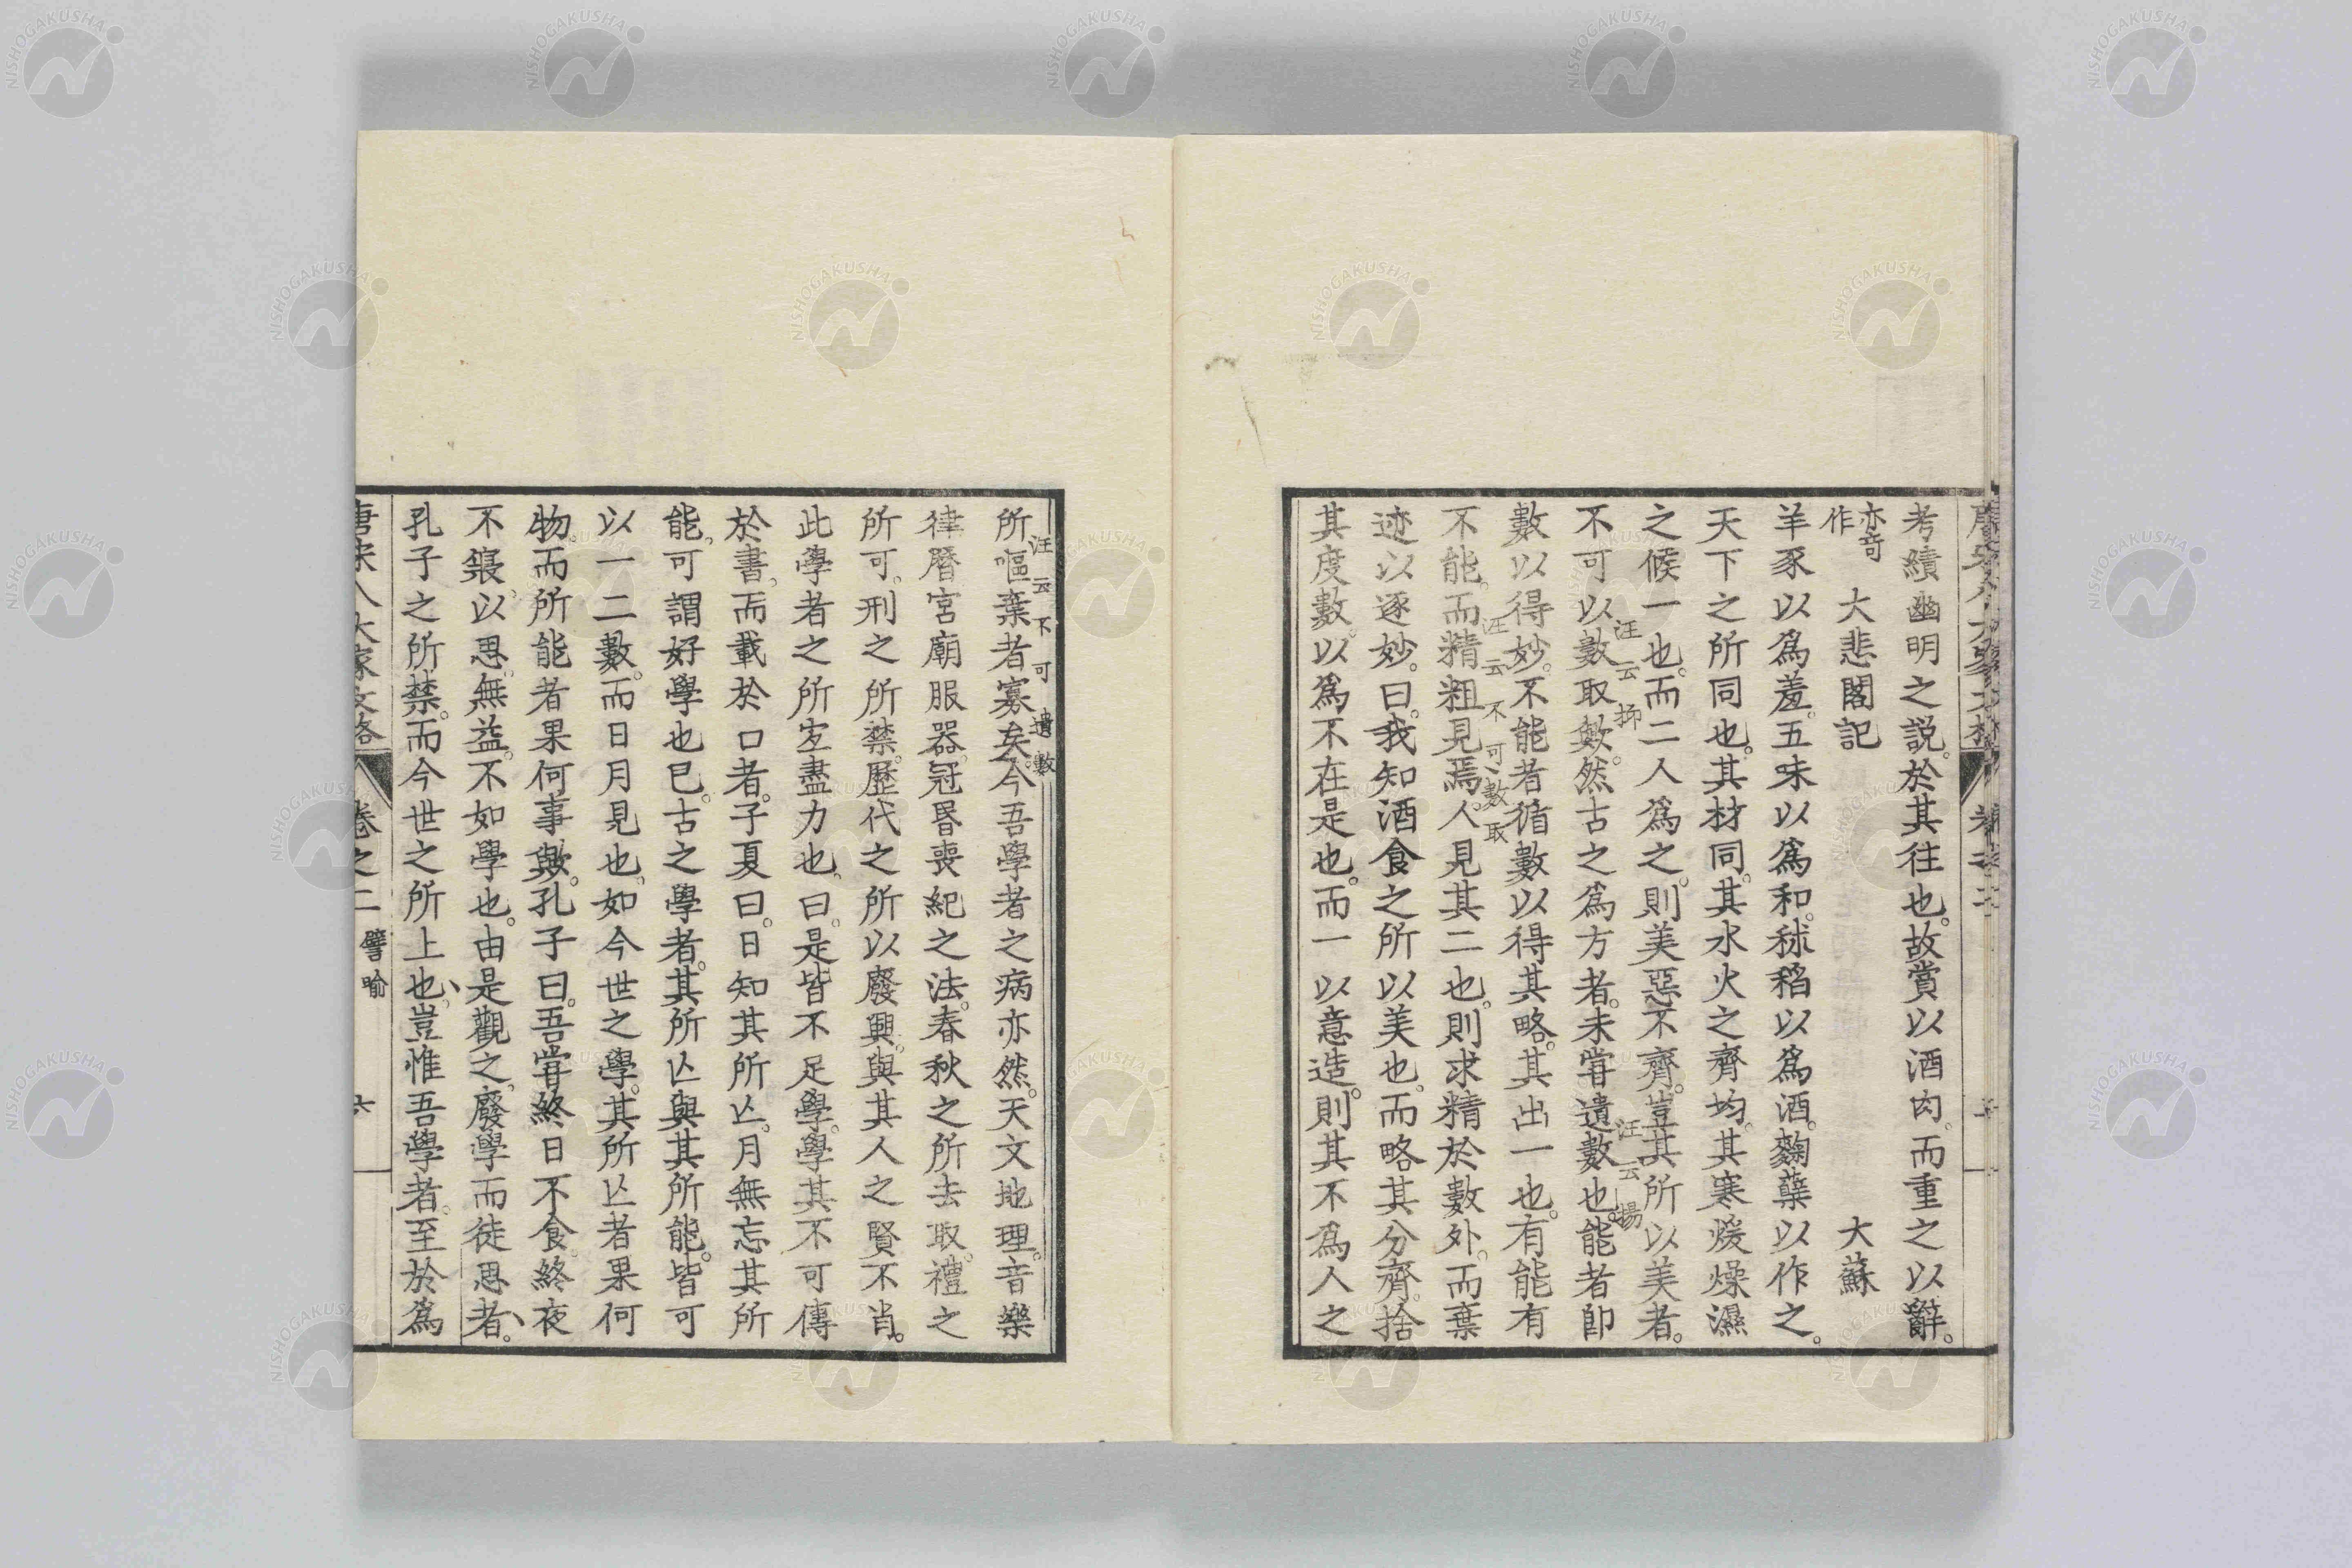 考績幽明之説。於其徃也。故賞以酒肉。而重之以辭。
亦奇作 大悲閣記 大蘇
羊豕以爲羞。五味以爲和。秫稻以爲酒。麴糵以作之。
天下之所同也。其材同。其水火之齊均。其寒煖燥濕
之候一也。而二人爲之。則美惡不齊。豈其所以美者。
汪云抑
汪云揚
不可以數取歟。然古之爲方者。未甞遺數也。能者卽
數以得妙。不能者循數以得其略。其出一也。有能有
汪云不可數取
不能。而精粗見焉。人見其二也。則求精於數外。而棄
迹以逐妙。曰。我知酒食之所以美也。而略其分齊。捨
其度數。以爲不在是也。而一以意造。則其不爲人之
汪云不可遺數
所嘔棄者寡矣。今吾學者之病亦然。天文地理。音樂
律曆。宮廟服器。冠昬喪紀之法。春秋之所去取。禮之
所可。刑之所禁。歷代之所以廢興。與其人之賢不肖。
此學者之所宜盡力也。曰。是皆不足學。學其不可傳
於書。而載於口者。子夏曰。日知其所亡。月無忘其所
能。可謂好學也已。古之學者。其所亡與其所能。皆可
以一二數。而日月見也。如今世之學。其所亡者果何
物。而所能者果何事歟。孔子曰。吾甞終日不食。終夜
不寢。以思。無益。不如學也。由是觀之。廢學而徒思者。
孔子之所禁。而今世之所上也。豈惟吾學者。至於爲
唐宋八大家文格 卷之二 譬喩 六
NISHOGAKUSHA